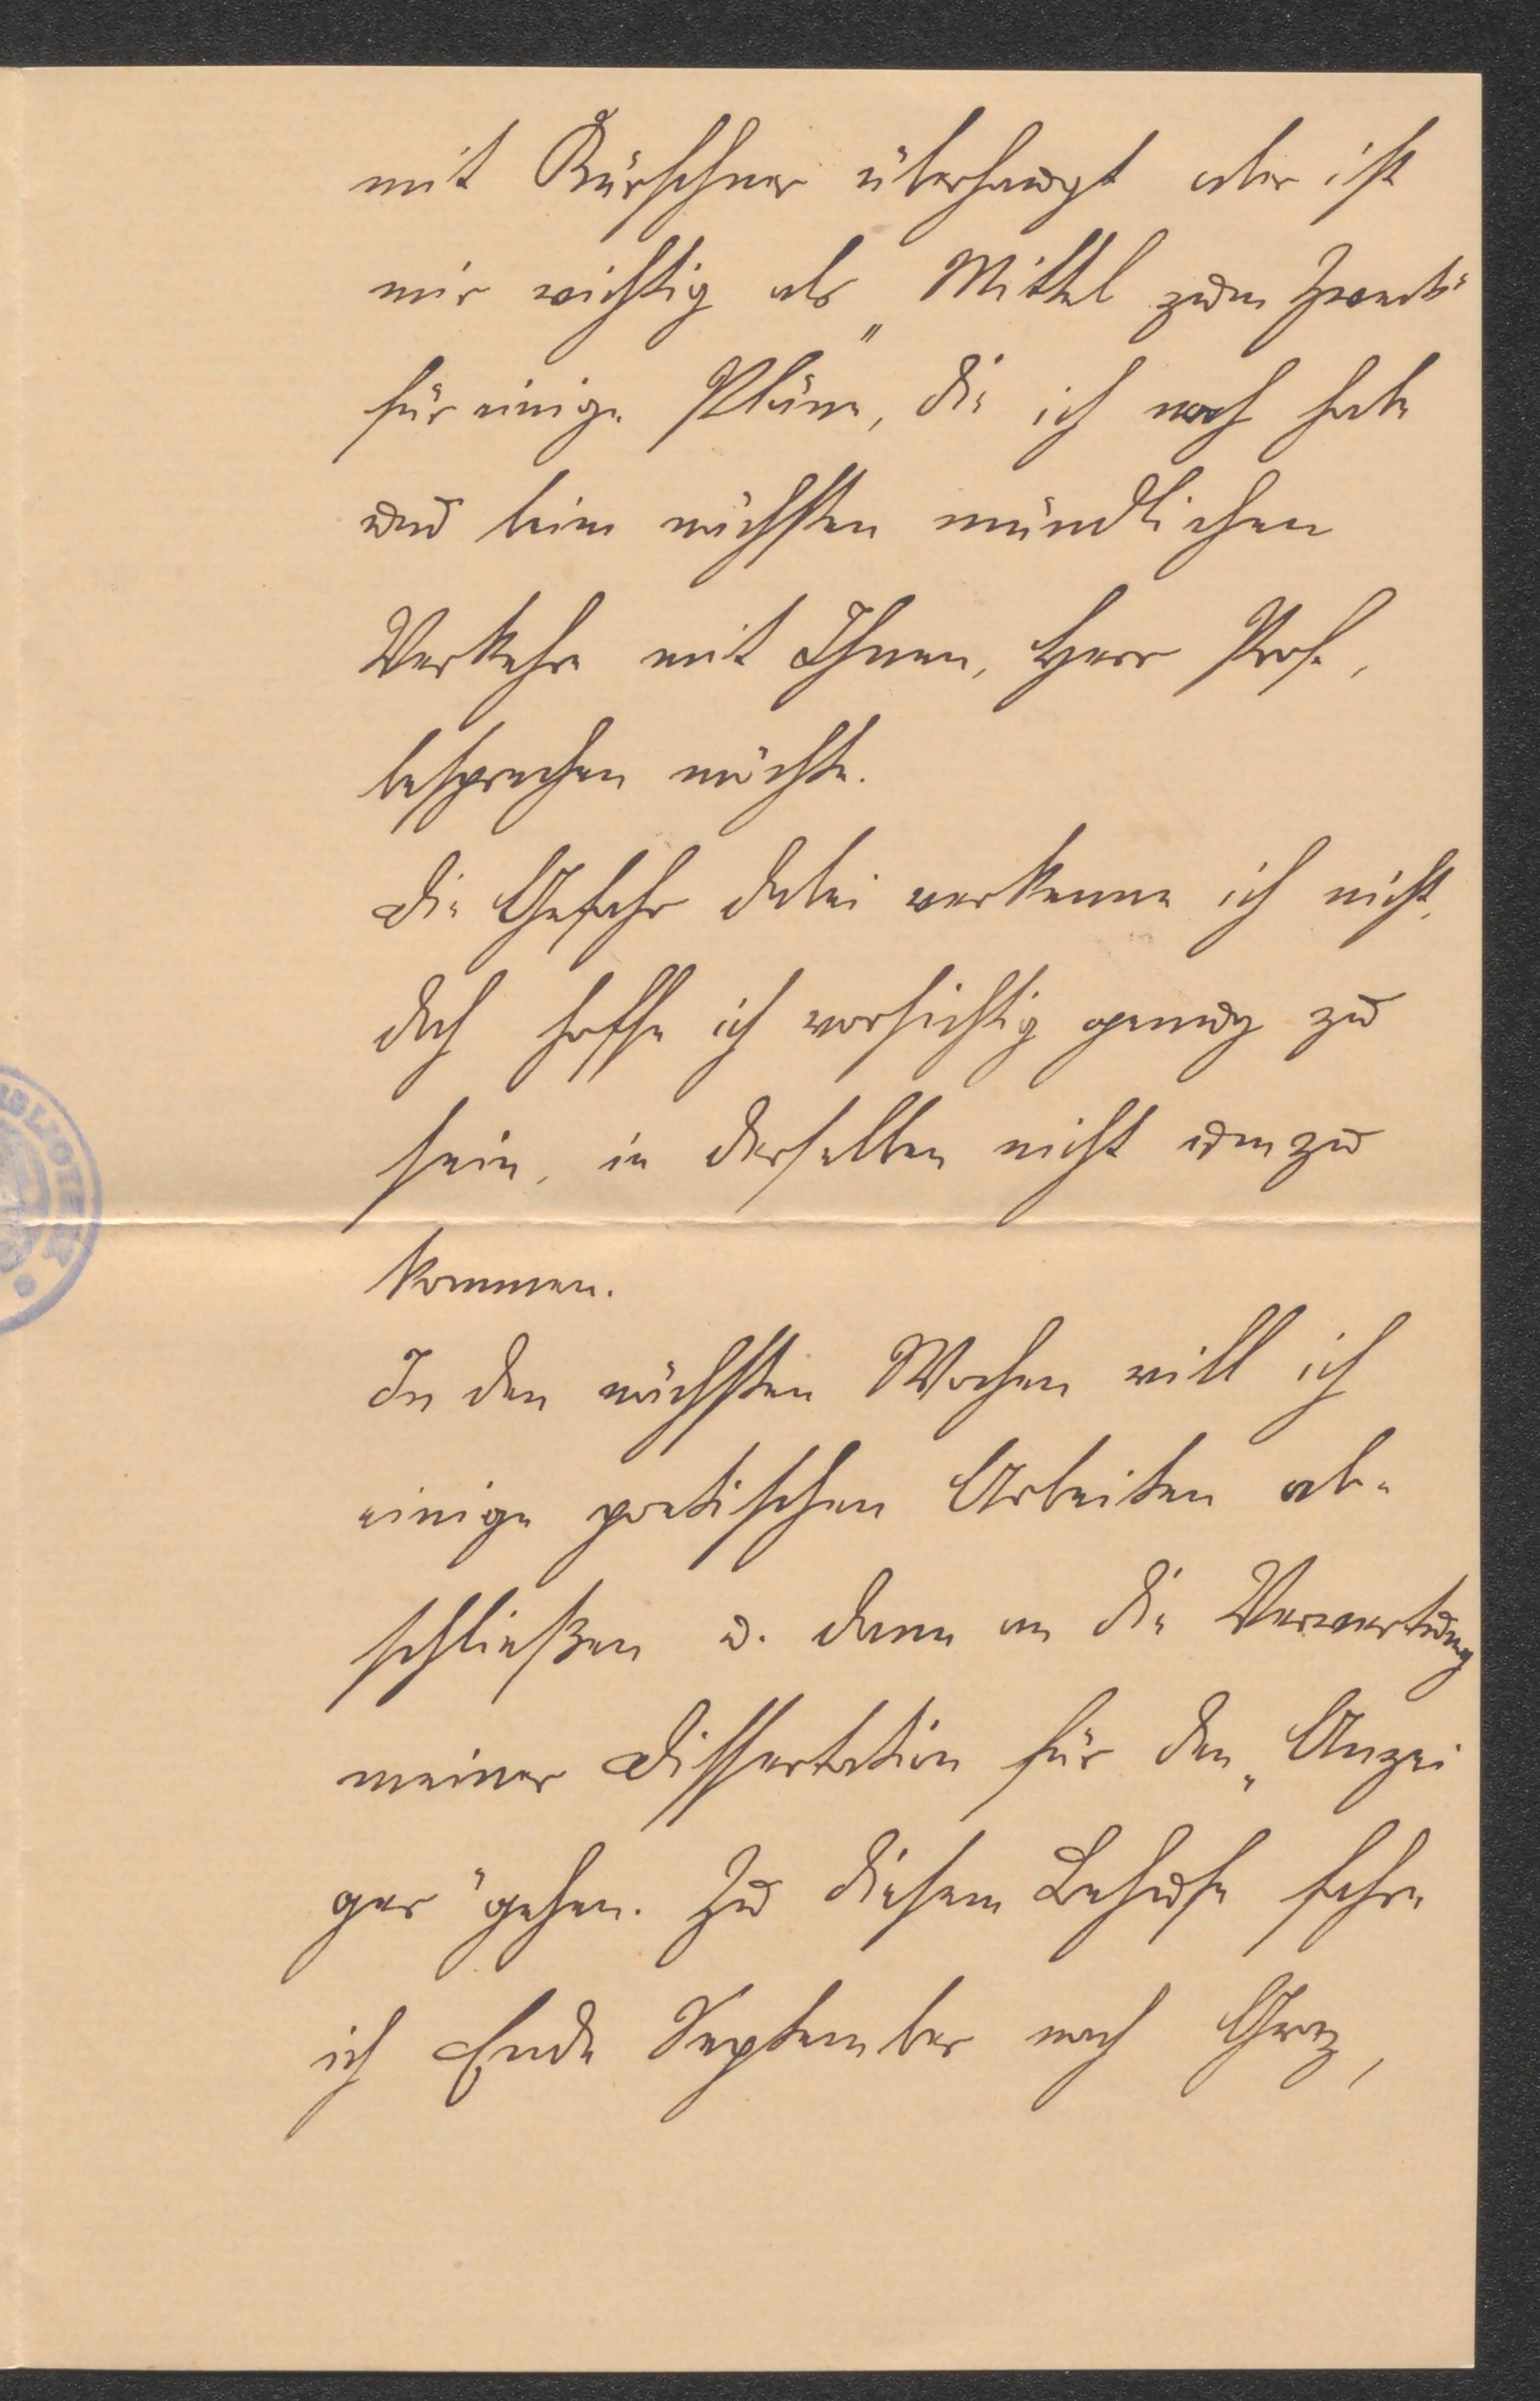 mit Kürschner überhaupt aber ist
mir wichtig als „Mittel zum Zweck“
für einige Pläne, die ich noch habe
und beim nächsten mündlichen
Verkehre mit Ihnen, Herr Prof.,
besprechen möchte.
Die Gefahr dabei verkenne ich nicht,
doch hoffe ich vorsichtig genug zu
sein, in derselben nicht umzu
kommen.
In den nächsten Wochen will ich
einige poetischen Arbeiten ab-
schließen u. dann an die Verwertung
meiner Dissertation für den „Anzei
ger“ gehen. Zu diesem Behufe fahre
ich Ende September nach Graz,